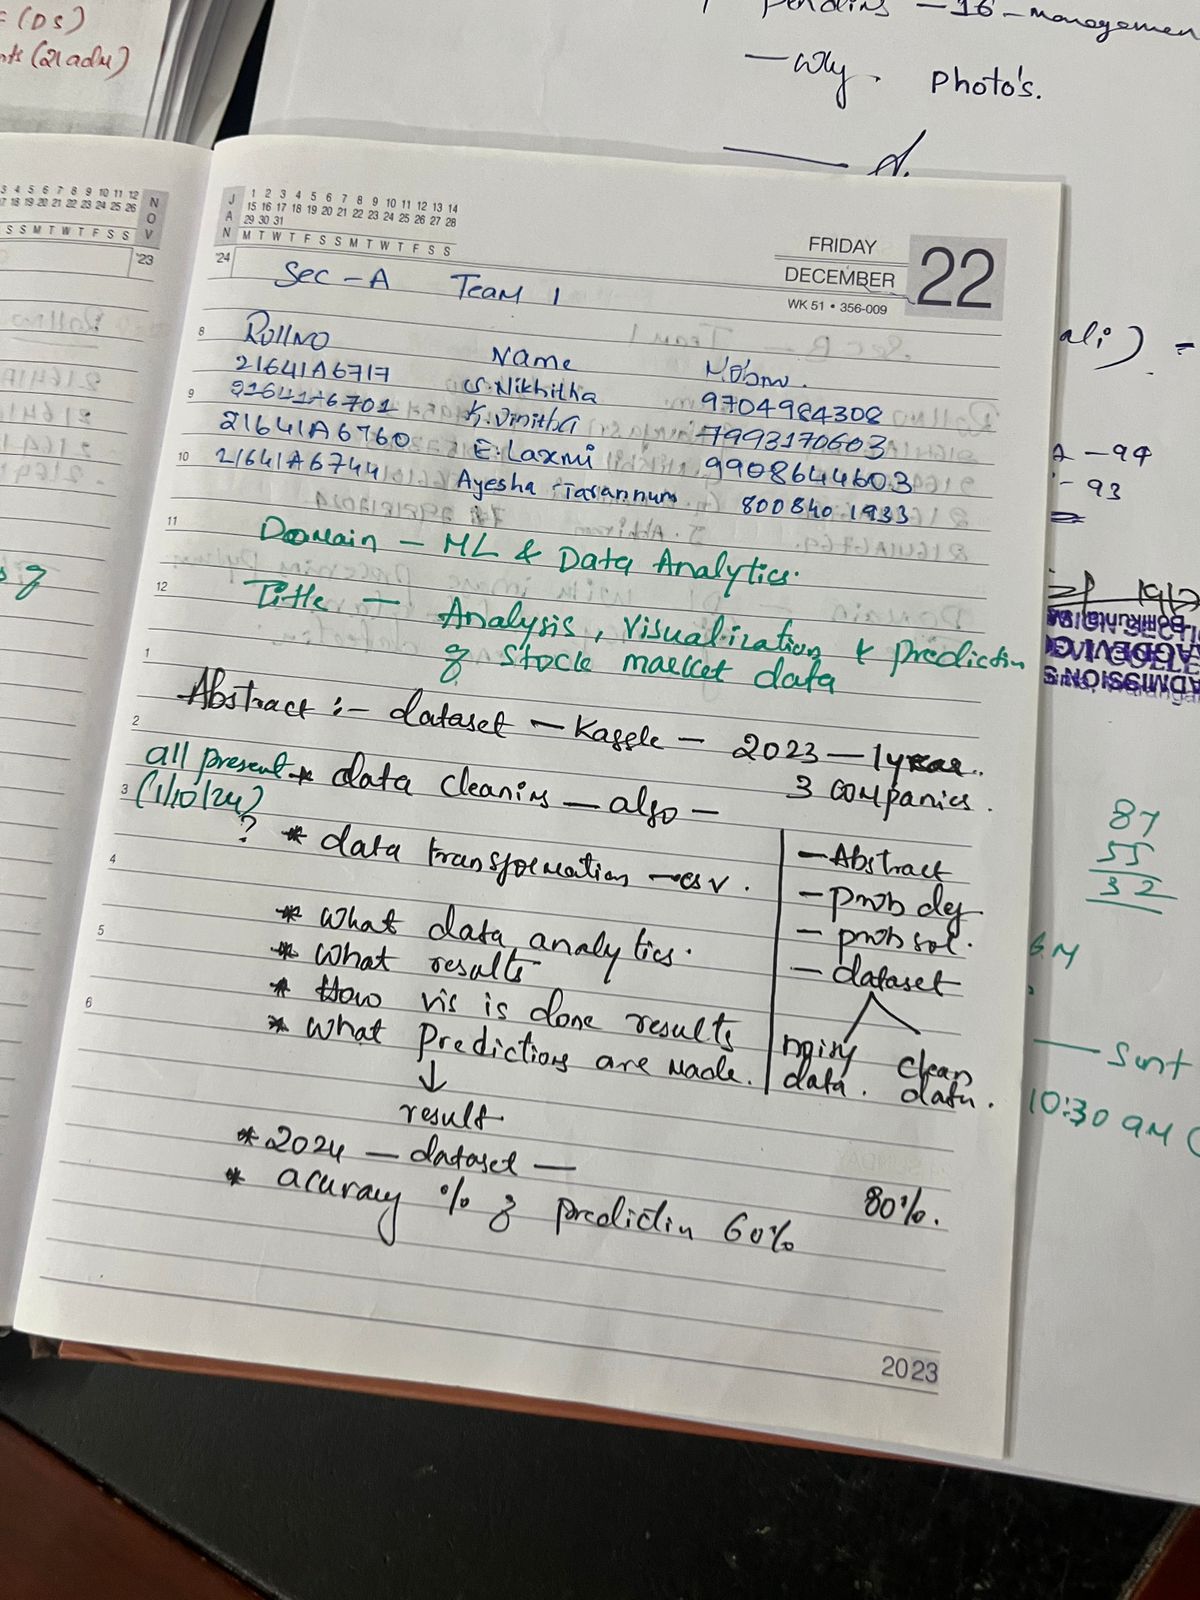 = (DS)
nts (21adm)
pending - 16 - management
- why. Photo's.
3 4 5 6 7 8 9 10 11 12
17 18 19 20 21 22 23 24 25 26
S S M T W T F S S
NOV
'23
JAN
1 2 3 4 5 6 7 8 9 10 11 12 13 14
15 16 17 18 19 20 21 22 23 24 25 26 27 28
29 30 31
M T W T F S S M T W T F S S
'24
FRIDAY
DECEMBER
22
WK 51 • 356-009
Sec - A Team 1
8
Rollno Name Mobno.
21641A6717 G.Nikhitha 9704984308
9
21641A6701 K.Vinitha 7993170603
21641A6760 E.Laxmi 9908644603
10
21641A6744 Ayesha Tarannum 8008401933
11
Domain - ML & Data Analytics.
12
Title - Analysis, Visualization & prediction
of stock market data
1
Abstract :- dataset - Kaggle - 2023 - 1 year.
3 companies.
2
all present * data cleaning - also -
3
(1/10/24)
? * data transformation - csv.
4
* what data analytics.
5
* what results
* How vis is done results
6
* what predictions are made.
↓
result
* 2024 - dataset -
* acuracy % of prediction 60% 80%.
- Abstract
- prob def
- prob sol.
- dataset
noisy data. clean data.
2023
ali) =
- 94
- 93
87
55
32
- Sent
10:30 AM (